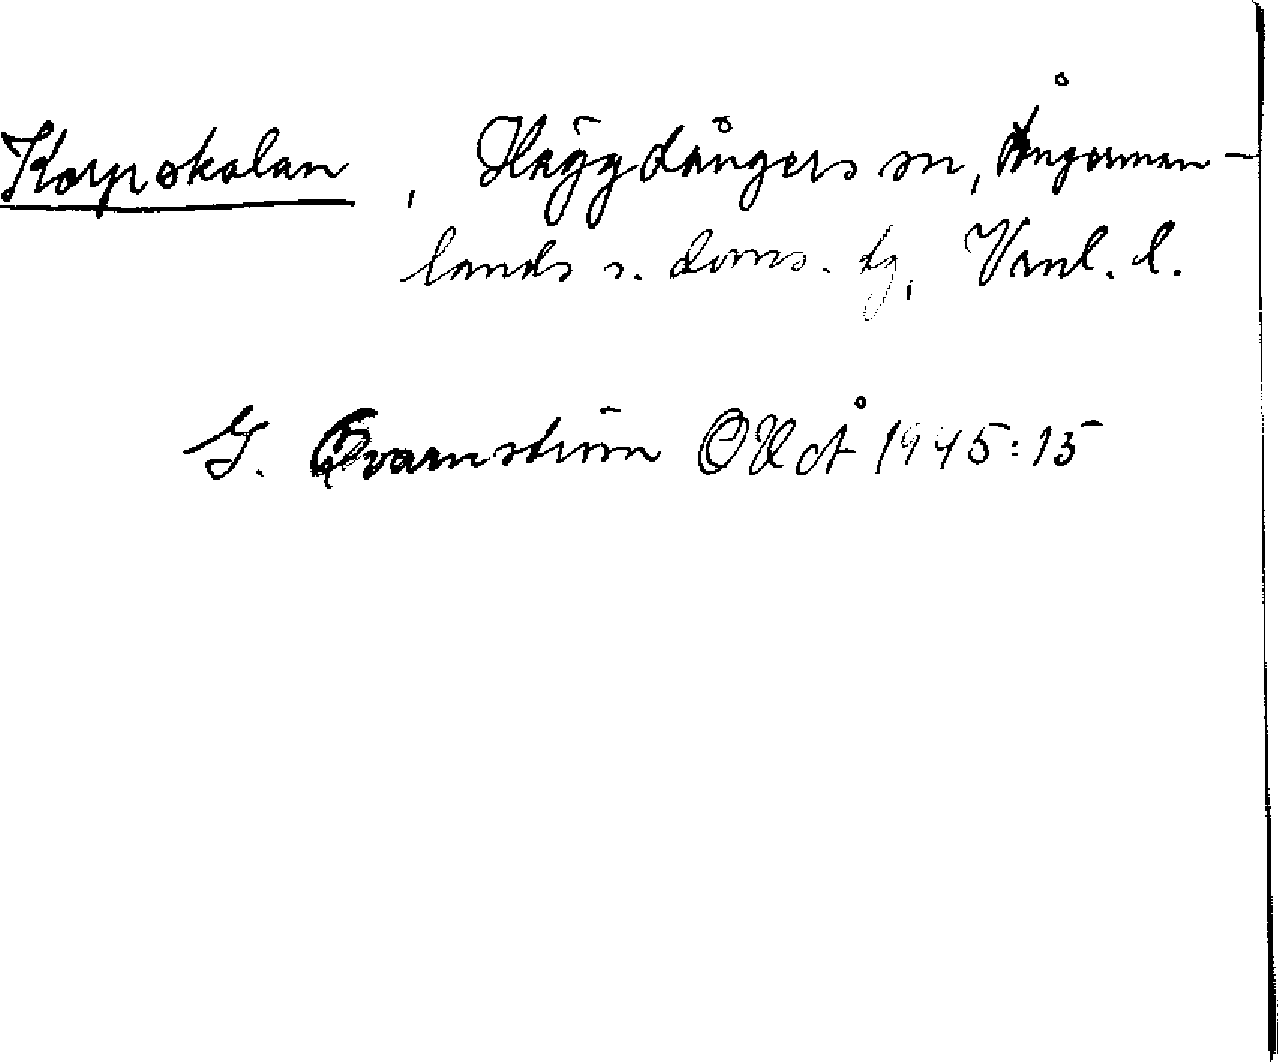 Korpskalan, Häggdångers sn, Ångerman-
lands s. doms. tg, Vnl. l.
G. Qvarnström OUÅ 1945:15